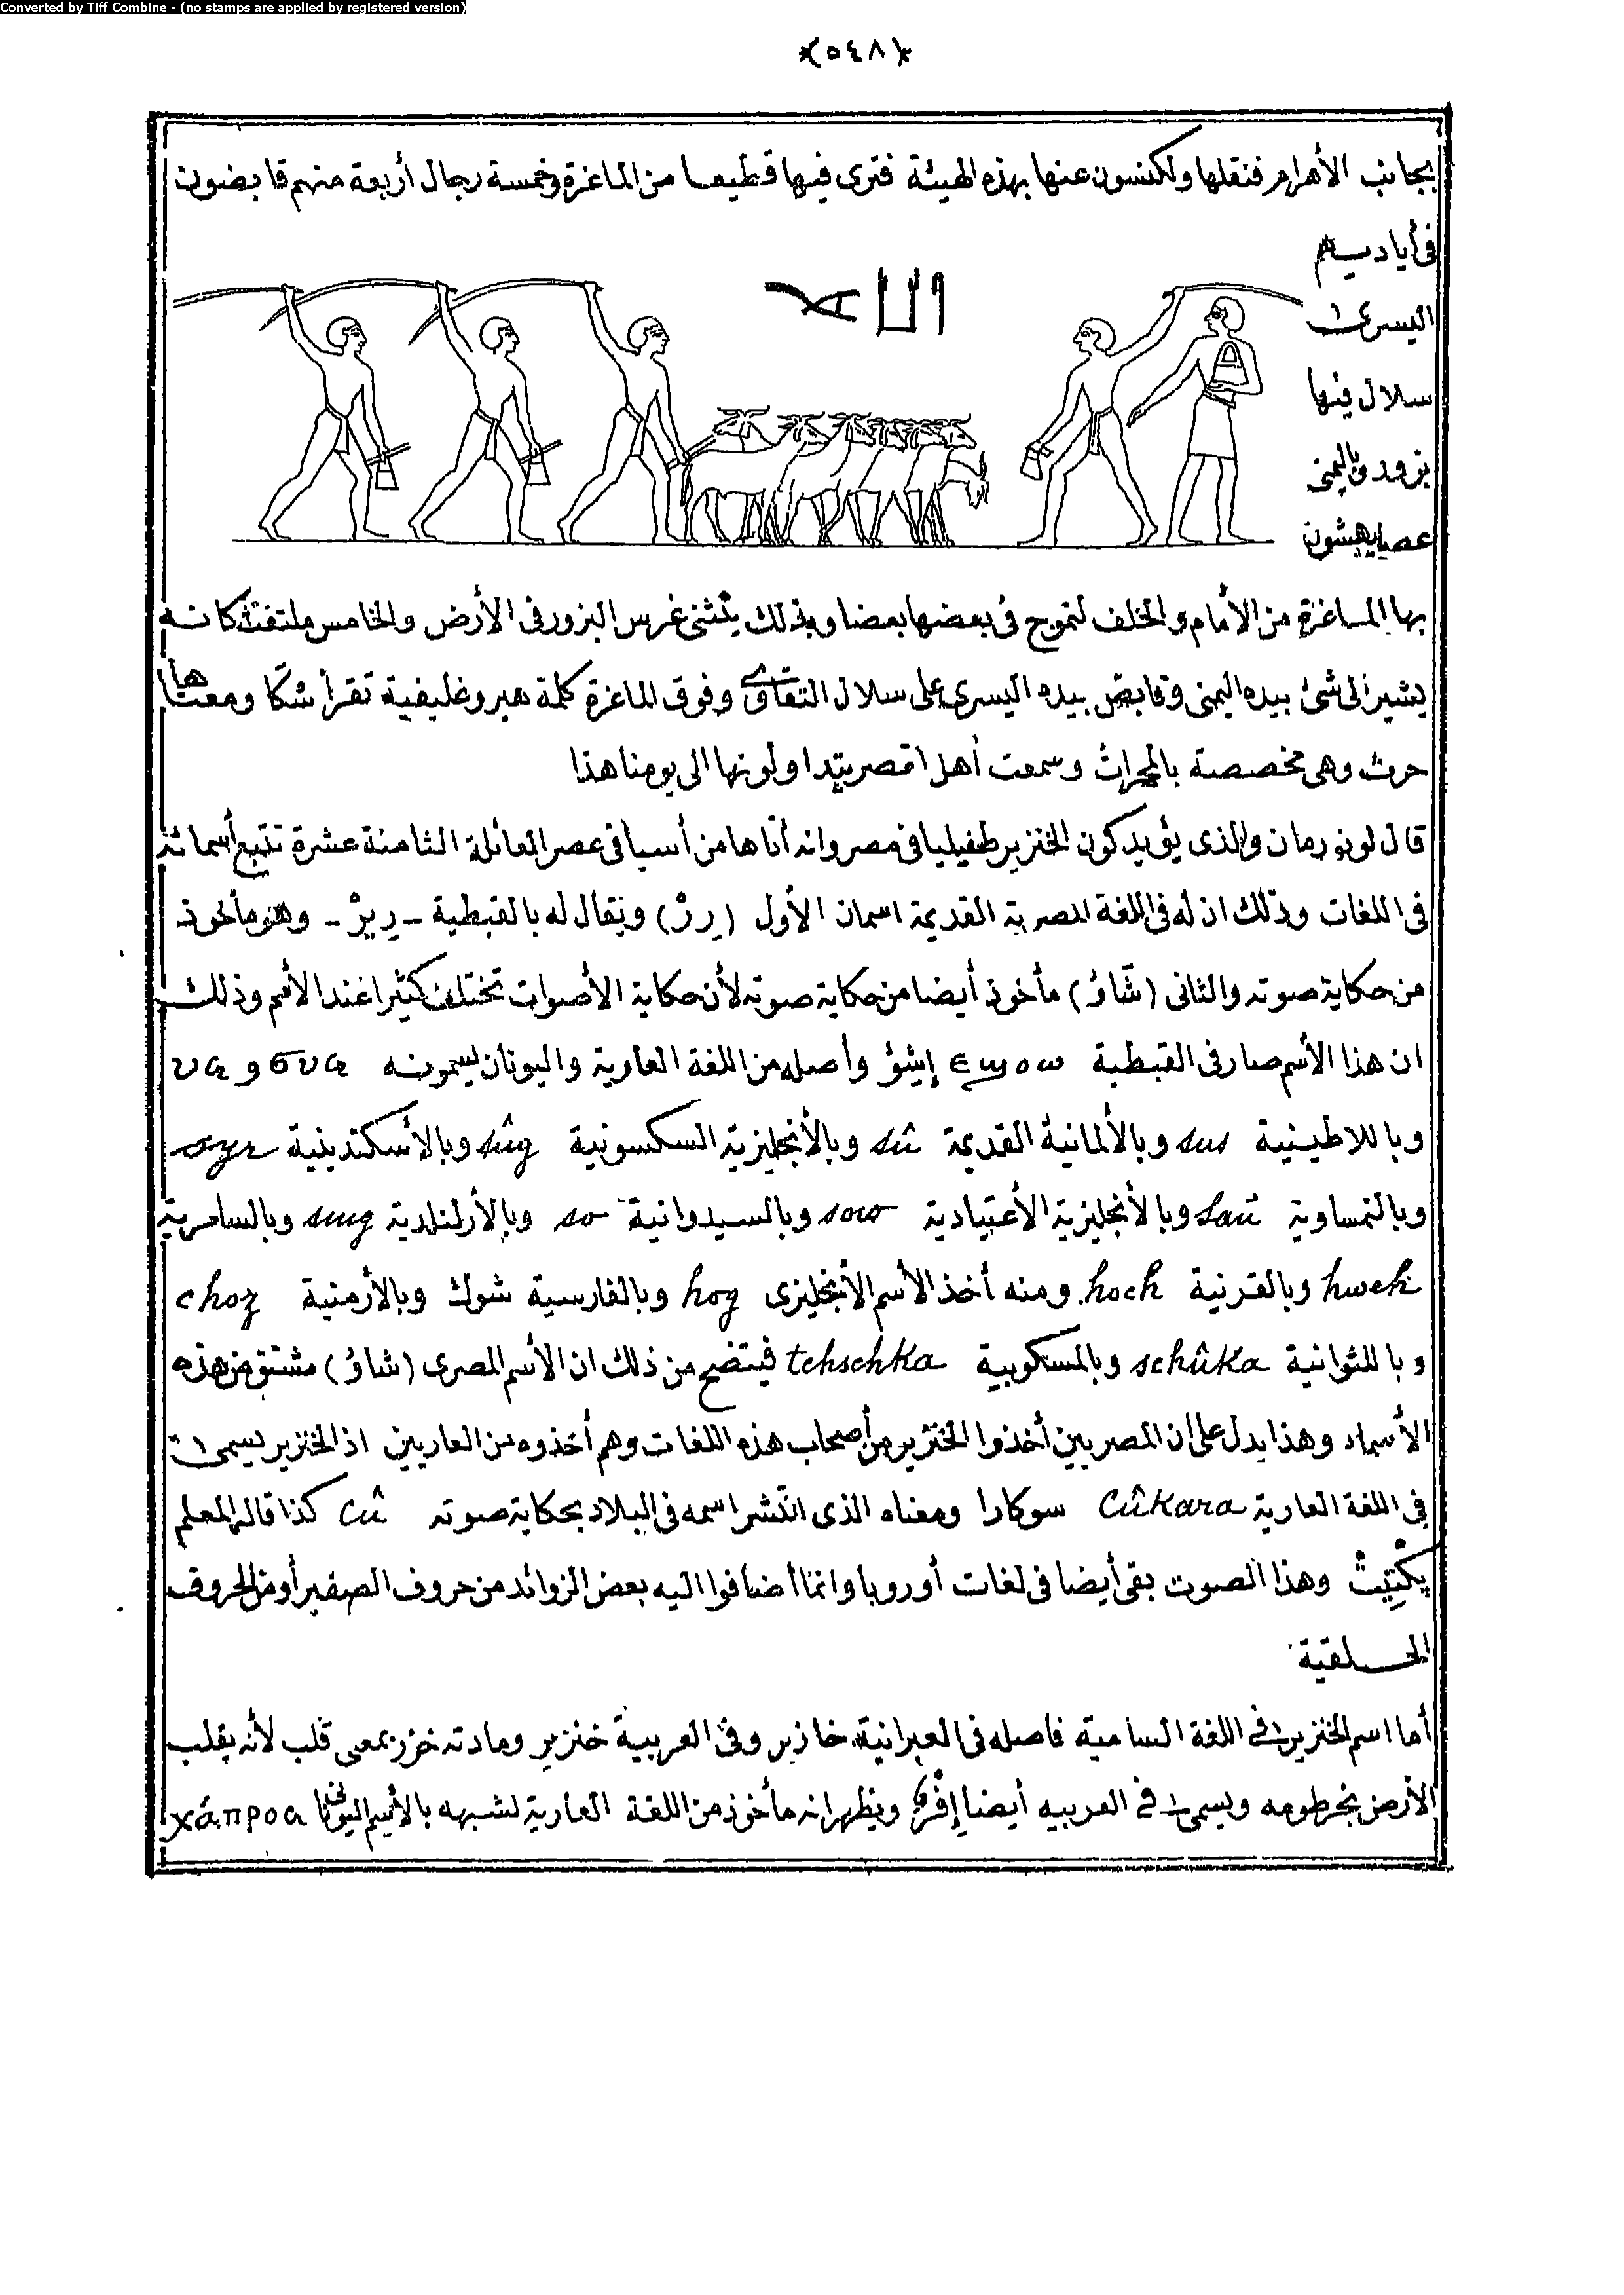 Converted by Tiff Combine - (no stamps are applied by registered version)
(٥٤٨)
بجانب الأهرام فنقلها ولكنسون عنها بهذه الهيئة فترى فيها قطيعا من الماغزة وخمسة رجال أربعة منهم قابضون
فى أياديهم
اليسرى
سلال فيها
بزور وباليمنى
عصايهشون
بها الماغزة من الأمام والخلف لتموج فى بعضها بعضا وبذلك يتثنى غرس البزور فى الأرض والخامس ملتفت كانه
يشير الى شئ بيده اليمنى وقابض بيده اليسرى على سلال التقاوى وفوق الماغزة كلمة هيروغليفية تقرأ شكا ومعناها
حرث وهى مخصصة بالمحراث وسمعت أهل مصر يتداولونها الى يومنا هذا
قال لونورمان والذى يؤيد كون الخنزير طفيليا فى مصر وانه أتاها من أسيا فى عصر العائلة الثامنة عشرة تتبع أسمائه
فى اللغات وذلك ان له فى اللغة المصرية القديمة اسمان الأول (رِرْ) ويقال له بالقبطية - رِيرْ - وهو مأخوذ
من حكاية صوته والثانى (شَاوُ) مأخوذ أيضا من حكاية صوته لأن حكاية الأصوات تختلف كثيرا عند الأمم وذلك
ان هذا الأسم صار فى القبطية ⲉϣⲟⲱ إيشؤ وأصله من اللغة العارية واليونان يسمونه συα و υα
وباللاطينية sus وبالألمانية القديمة sû وبالأنجليزية السكسونية sûg وبالأسكندينية syr
وبالنمساوية Sau وبالأنجليزية الأعتيادية sow وبالسيدوانية so وبالأرلندية suig وبالسامرية
hwch وبالقرنية hoch ومنه أخذ الأسم الأنجليزى hog وبالفارسية شوك وبالأرمنية choz
وباللثوانية schûka وبالمسكوبية tchschka فيتضح من ذلك ان الأسم المصرى (شاوُ) مشتق من هذه
الأسماء وهذا يدل على ان المصريين أخذوا الخنزير من أصحاب هذه اللغات وهم أخذوه من العاريين اذ الخنزير يسمى
فى اللغة العارية Cûkara سوكارا ومعناه الذى انتشر اسمه فى البلاد بحكاية صوته Cû كذا قاله المعلم
پكْتِيتْ وهذا الصوت بقى أيضا فى لغات أوروبا وانما أضافوا اليه بعض الزوائد من حروف الصفير أو من الحروف
الحلقية
أما اسم الخنزير فى اللغة السامية فاصله فى العبرانية خازير وفى العربية خنزير ومادته خزر بمعنى قلب لأنه يقلب
الأرض بخرطومه ويسمى فى العربيه أيضا ويظهر انه مأخوذ من اللغة العارية لشبهه بالأسم اليونانى χάπροα